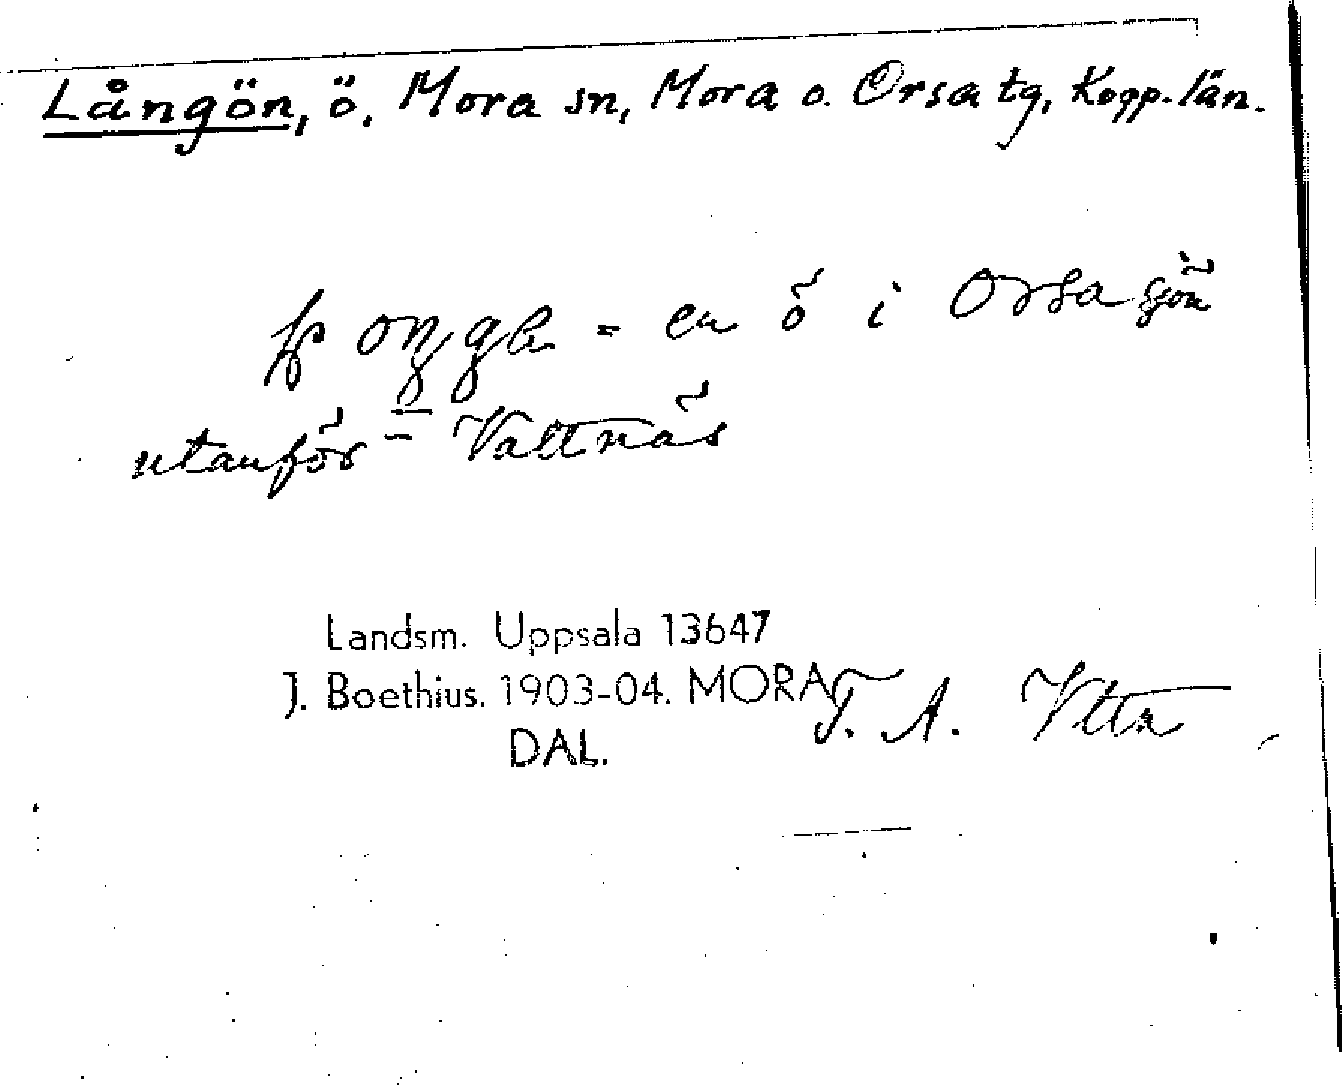 Långön, ö, Mora sn, Mora o. Orsa tg, Kopp. län.
- en ö i Orsasjön
utanför - Vattnäs
Landsm. Uppsala 13647
J. Boethius. 1903-04. MORA
DAL.
T. A. Vttn